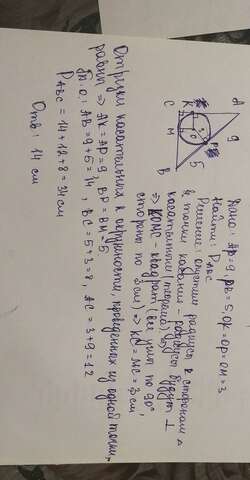 A
9
K
P
3
O
5
C
M
B
Дано: AP=9, PB=5, OK=OP=OM=3
Найти: P ABC
Решение: опустим радиусы к сторонам △
к точкам касания – радиусы будут ⊥
касательным (теорема)
⇒ KOMC – квадрат (все углы по 90°,
стороны по 3 см) ⇒ KC=MC=3 см
Отрезки касательных к окружности, проведенных из одной точки,
равны ⇒ AK=AP=9, BP=BM=5
AB=9+5=14, BC=5+3=8, AC=3+9=12
P ABC = 14+12+8=34 см
Отв: 14 см